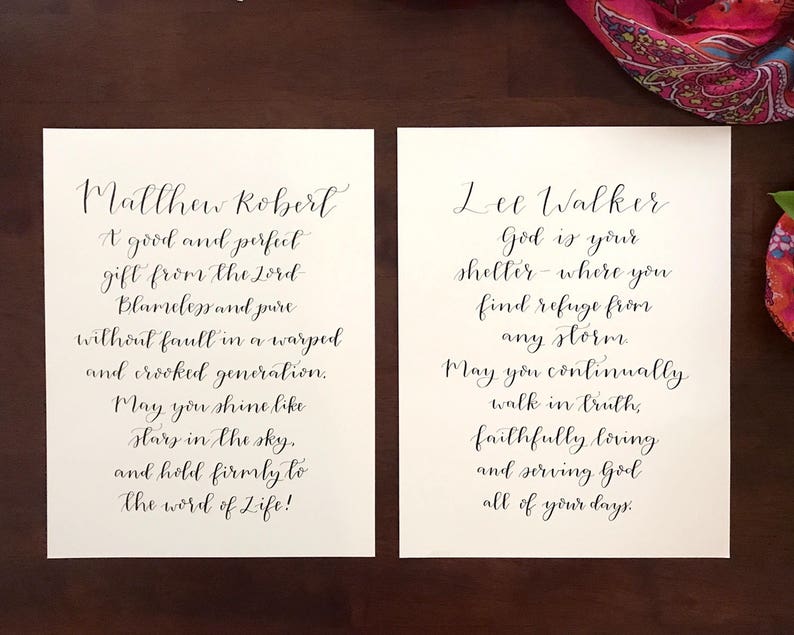 Matthew Robert
A good and perfect
gift from the Lord-
Blameless and pure
without fault in a warped
and crooked generation.
May you shine like
stars in the sky,
and hold firmly to
the word of Life!
Lee Walker
God is your
shelter - where you
find refuge from
any storm.
May you continually
walk in truth,
faithfully loving
and serving God
all of your days.